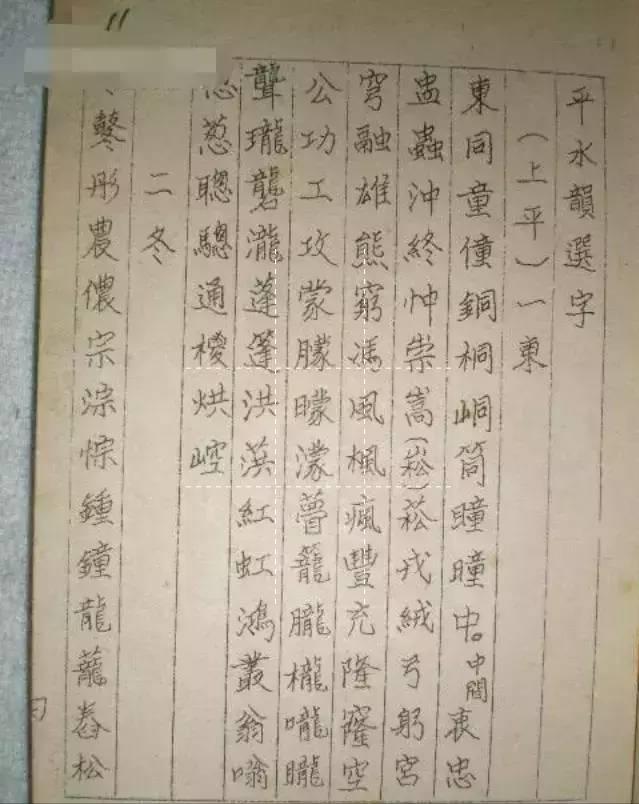 11
平水韻選字
（上平）一東
東同童僮銅桐峒筒瞳曈中。中間衷忠
盅蟲沖終忡崇嵩（崧）菘戎絨弓躬宮
穹融雄熊窮馮風楓瘋豐充隆窿空
公功工攻蒙朦曚濛瞢籠朧櫳嚨曨
聾瓏礱瀧蓬篷洪紅虹鴻叢翁嗡
葱聰驄通椶烘崆
二冬
彤農儂宗淙悰鍾鐘龍蘢舂松